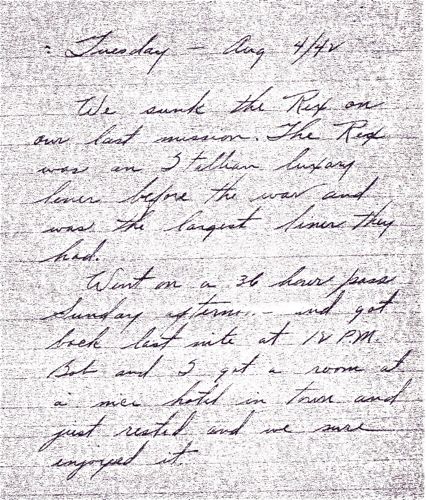 Tuesday - Aug 4/42
We sunk the Rex on
our last mission. The Rex
was an Itillian luxary
liner before the war and
was the largest liner they
had.
Went on a 36 hour pass
Sunday afternoon - and got
back last nite at 12 P.M.
Bob and I got a room at
a nice hotel in town and
just rested and we sure
enjoyed it.